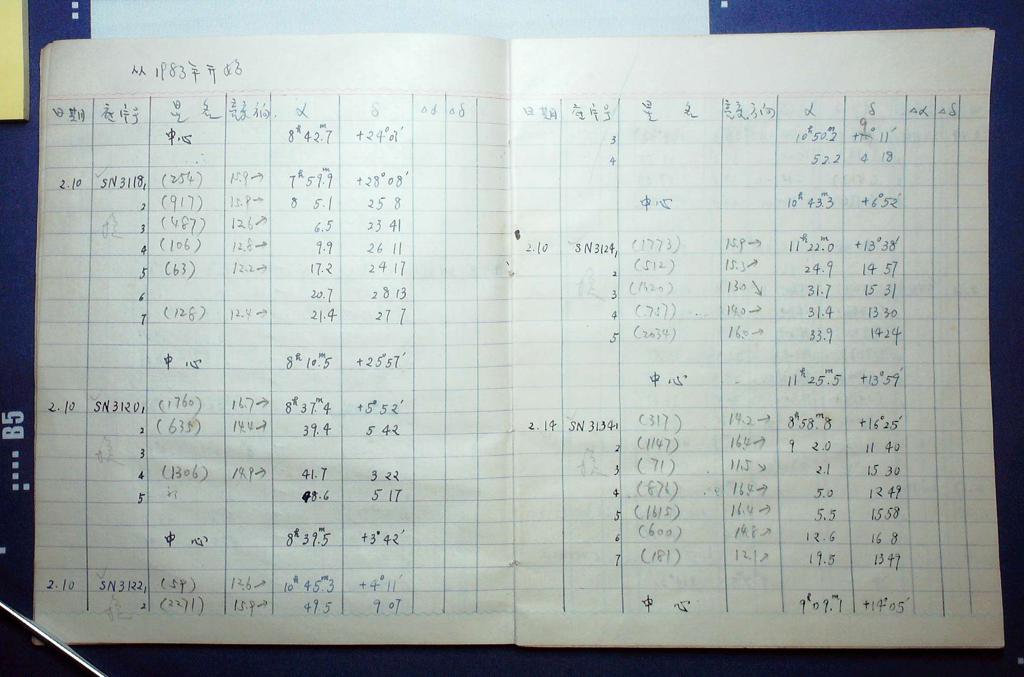 从1983年开始
日期 夜序号 星名 亮度方向 α δ Δα Δδ
中心 8ʰ42.7ᵐ +24°01′
2.10 SN3118, (254) 15.9→ 7ʰ59.9ᵐ +28°08′
2 (917) 15.8→ 8 5.1 25 8
3 (487) 12.6→ 6.5 23 41
4 (106) 12.8→ 9.9 26 11
5 (63) 12.2→ 17.2 24 17
6 20.7 28 13
7 (128) 12.4→ 21.4 27 7
中心 8ʰ10.5ᵐ +25°57′
2.10 SN3120, (1760) 16.7→ 8ʰ37.4ᵐ +5°52′
2 (635) 14.4→ 39.4 5 42
3
4 (1306) 14.9→ 41.7 3 22
5 48.6 5 17
中心 8ʰ39.5ᵐ +3°42′
2.10 SN3122, (59) 12.6→ 10ʰ45.3ᵐ +4°11′
2 (2271) 15.9→ 49.5 9 07
日期 夜序号 星名 亮度方向 α δ Δα Δδ
3 10ʰ50.2ᵐ 9°11′
4 52.2 4 18
中心 10ʰ43.3ᵐ +6°52′
2.10 SN3124, (1773) 15.9→ 11ʰ22.0ᵐ +13°38′
2 (512) 15.3→ 24.9 14 57
3 (1620) 13.0↘ 31.7 15 31
4 (757) 14.0→ 31.4 13 30
5 (2034) 16.0→ 33.9 14 24
中心 11ʰ25.5ᵐ +13°59′
2.14 SN3134, (317) 14.2→ 8ʰ58.8ᵐ +16°25′
2 (1147) 16.4→ 9 2.0 11 40
3 (71) 11.5↘ 2.1 15 30
4 (876) 16.4→ 5.0 12 49
5 (1615) 16.4→ 5.5 15 58
6 (600) 14.8↗ 12.6 16 8
7 (181) 12.1↗ 19.5 13 49
中心 9ʰ09.1ᵐ +14°05′
B5